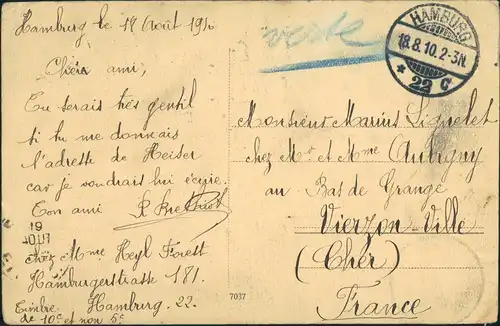 Hamburg le 18 Août 1910
Cher ami,
Tu serais très gentil
si tu me donnais
l'adresse de Heiser
car je voudrais lui écrire.
Ton ami R
chez Mme Heyl Forett
Hamburgerstrasse 181.
Hamburg. 22.
Timbre
de 10c et non 5c
19
AOUT
HAMBURG
18.8.10.2-3N.
* 22 C
Monsieur Marius Lignelet
chez Mr et Mme Aubugny
au Bas de Grange
Vierzon-Ville
(Cher)
France
7037